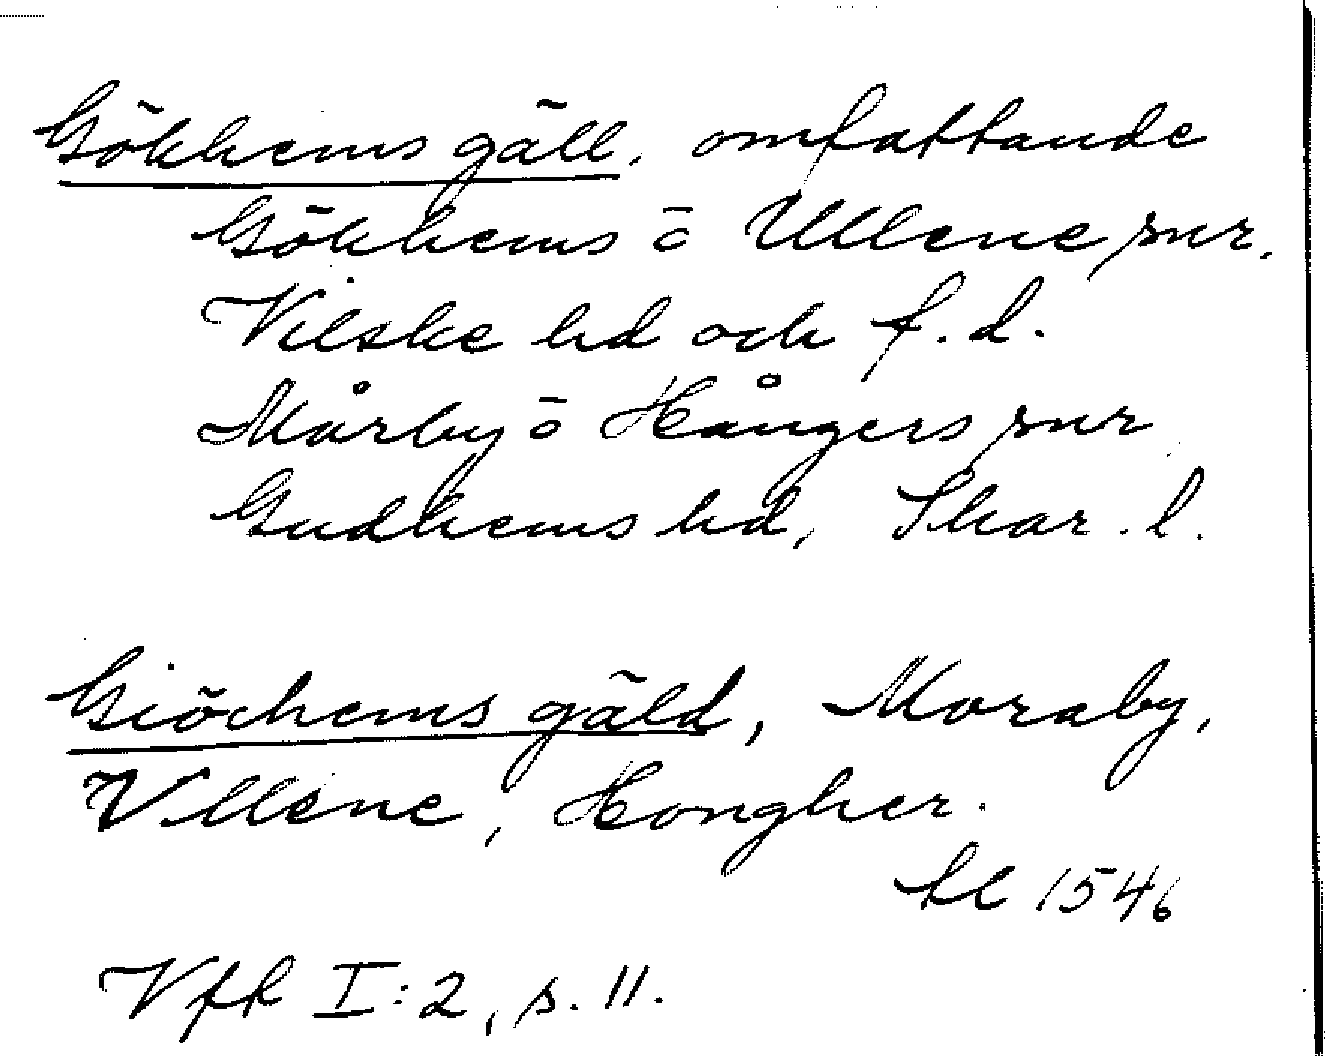 Gökhems gäll, omfattande
Gökhems o Ullene snr.
Vilske hd och f.d.
Mårby o Hångers snr
Gudhems hd, Skar. l.
Giöchems gäld, Moraby,
Vllene, Hongher.
1546
VFR I:2, s. 11.